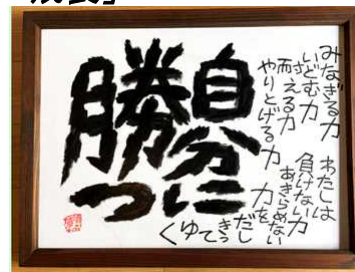 自分に
勝つ
みなぎる力
いどむ力
耐える力
やりとげる力
わたしは
負けない力
あきらめない
力を
だし
きってゆく